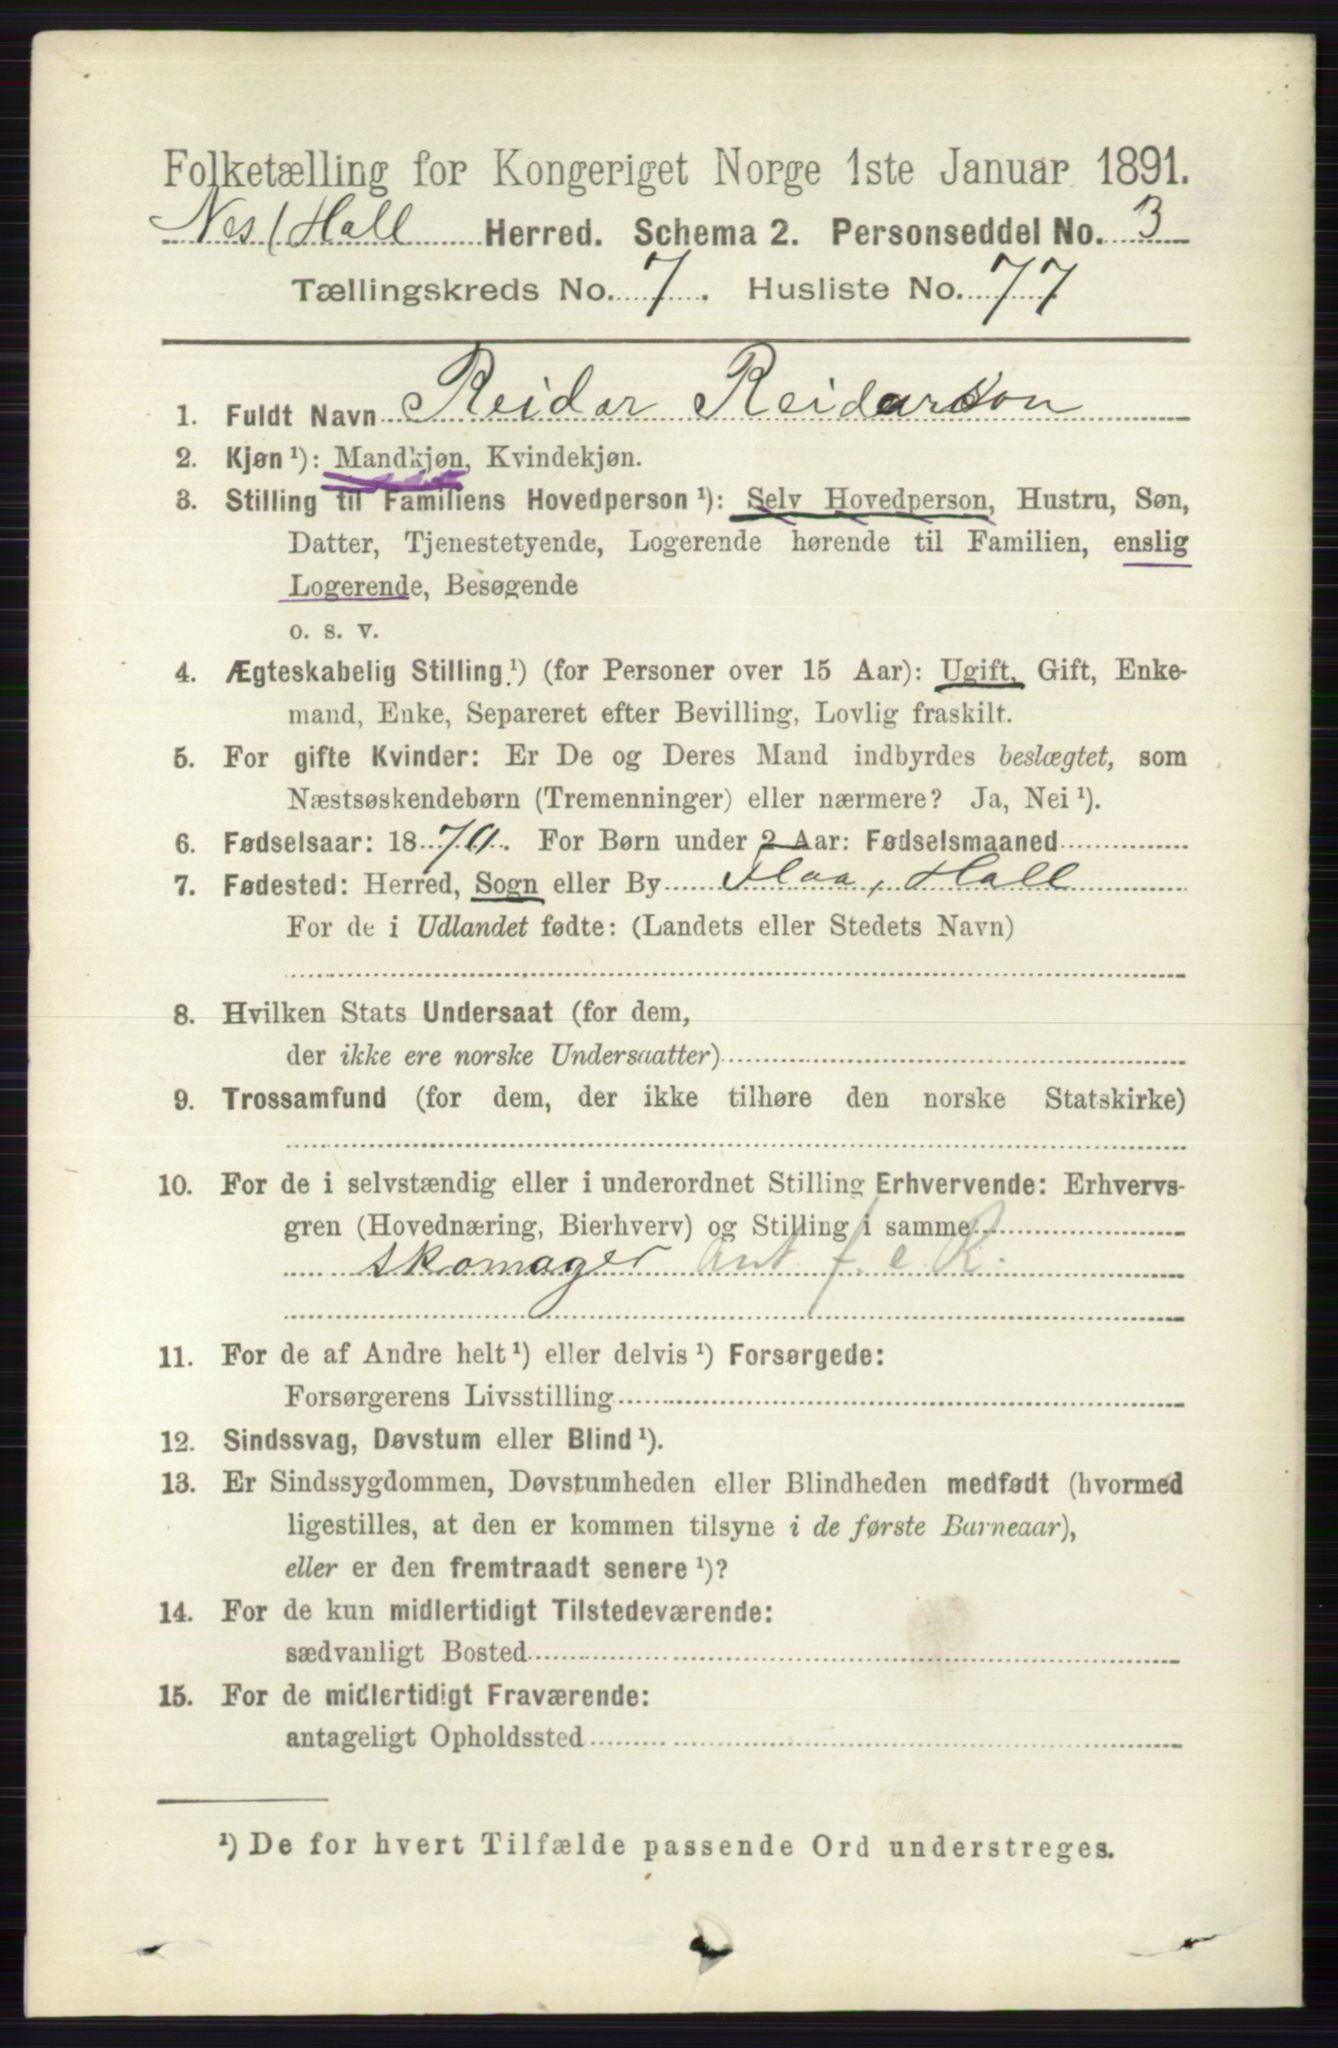 Folketælling for Kongeriget Norge 1ste Januar 1891.
Nes/Hall Herred. Schema 2. Personseddel No. 3
Tællingskreds No. 7. Husliste No. 77
1. Fuldt Navn Reidar Reidarson
2. Kjøn ¹): Mandkjøn, Kvindekjøn.
3. Stilling til Familiens Hovedperson ¹): Selv Hovedperson, Hustru, Søn,
Datter, Tjenestetyende, Logerende hørende til Familien, enslig
Logerende, Besøgende
o. s. v.
4. Ægteskabelig Stilling ¹) (for Personer over 15 Aar): Ugift, Gift, Enke-
mand, Enke, Separeret efter Bevilling, Lovlig fraskilt.
5. For gifte Kvinder: Er De og Deres Mand indbyrdes beslægtet, som
Næstsøskendebørn (Tremenninger) eller nærmere? Ja, Nei ¹).
6. Fødselsaar: 1870. For Børn under 2 Aar: Fødselsmaaned
7. Fødested: Herred, Sogn eller By Flaa, Hall
For de i Udlandet fødte: (Landets eller Stedets Navn)
8. Hvilken Stats Undersaat (for dem,
der ikke ere norske Undersaatter)
9. Trossamfund (for dem, der ikke tilhøre den norske Statskirke)
10. For de i selvstændig eller i underordnet Stilling Erhvervende: Erhvervs-
gren (Hovednæring, Bierhverv) og Stilling i samme
skomager ant f. e R.
11. For de af Andre helt ¹) eller delvis ¹) Forsørgede:
Forsørgerens Livsstilling
12. Sindssvag, Døvstum eller Blind ¹).
13. Er Sindssygdommen, Døvstumheden eller Blindheden medfødt (hvormed
ligestilles, at den er kommen tilsyne i de første Barneaar),
eller er den fremtraadt senere ¹)?
14. For de kun midlertidigt Tilstedeværende:
sædvanligt Bosted
15. For de midlertidigt Fraværende:
antageligt Opholdssted
¹) De for hvert Tilfælde passende Ord understreges.